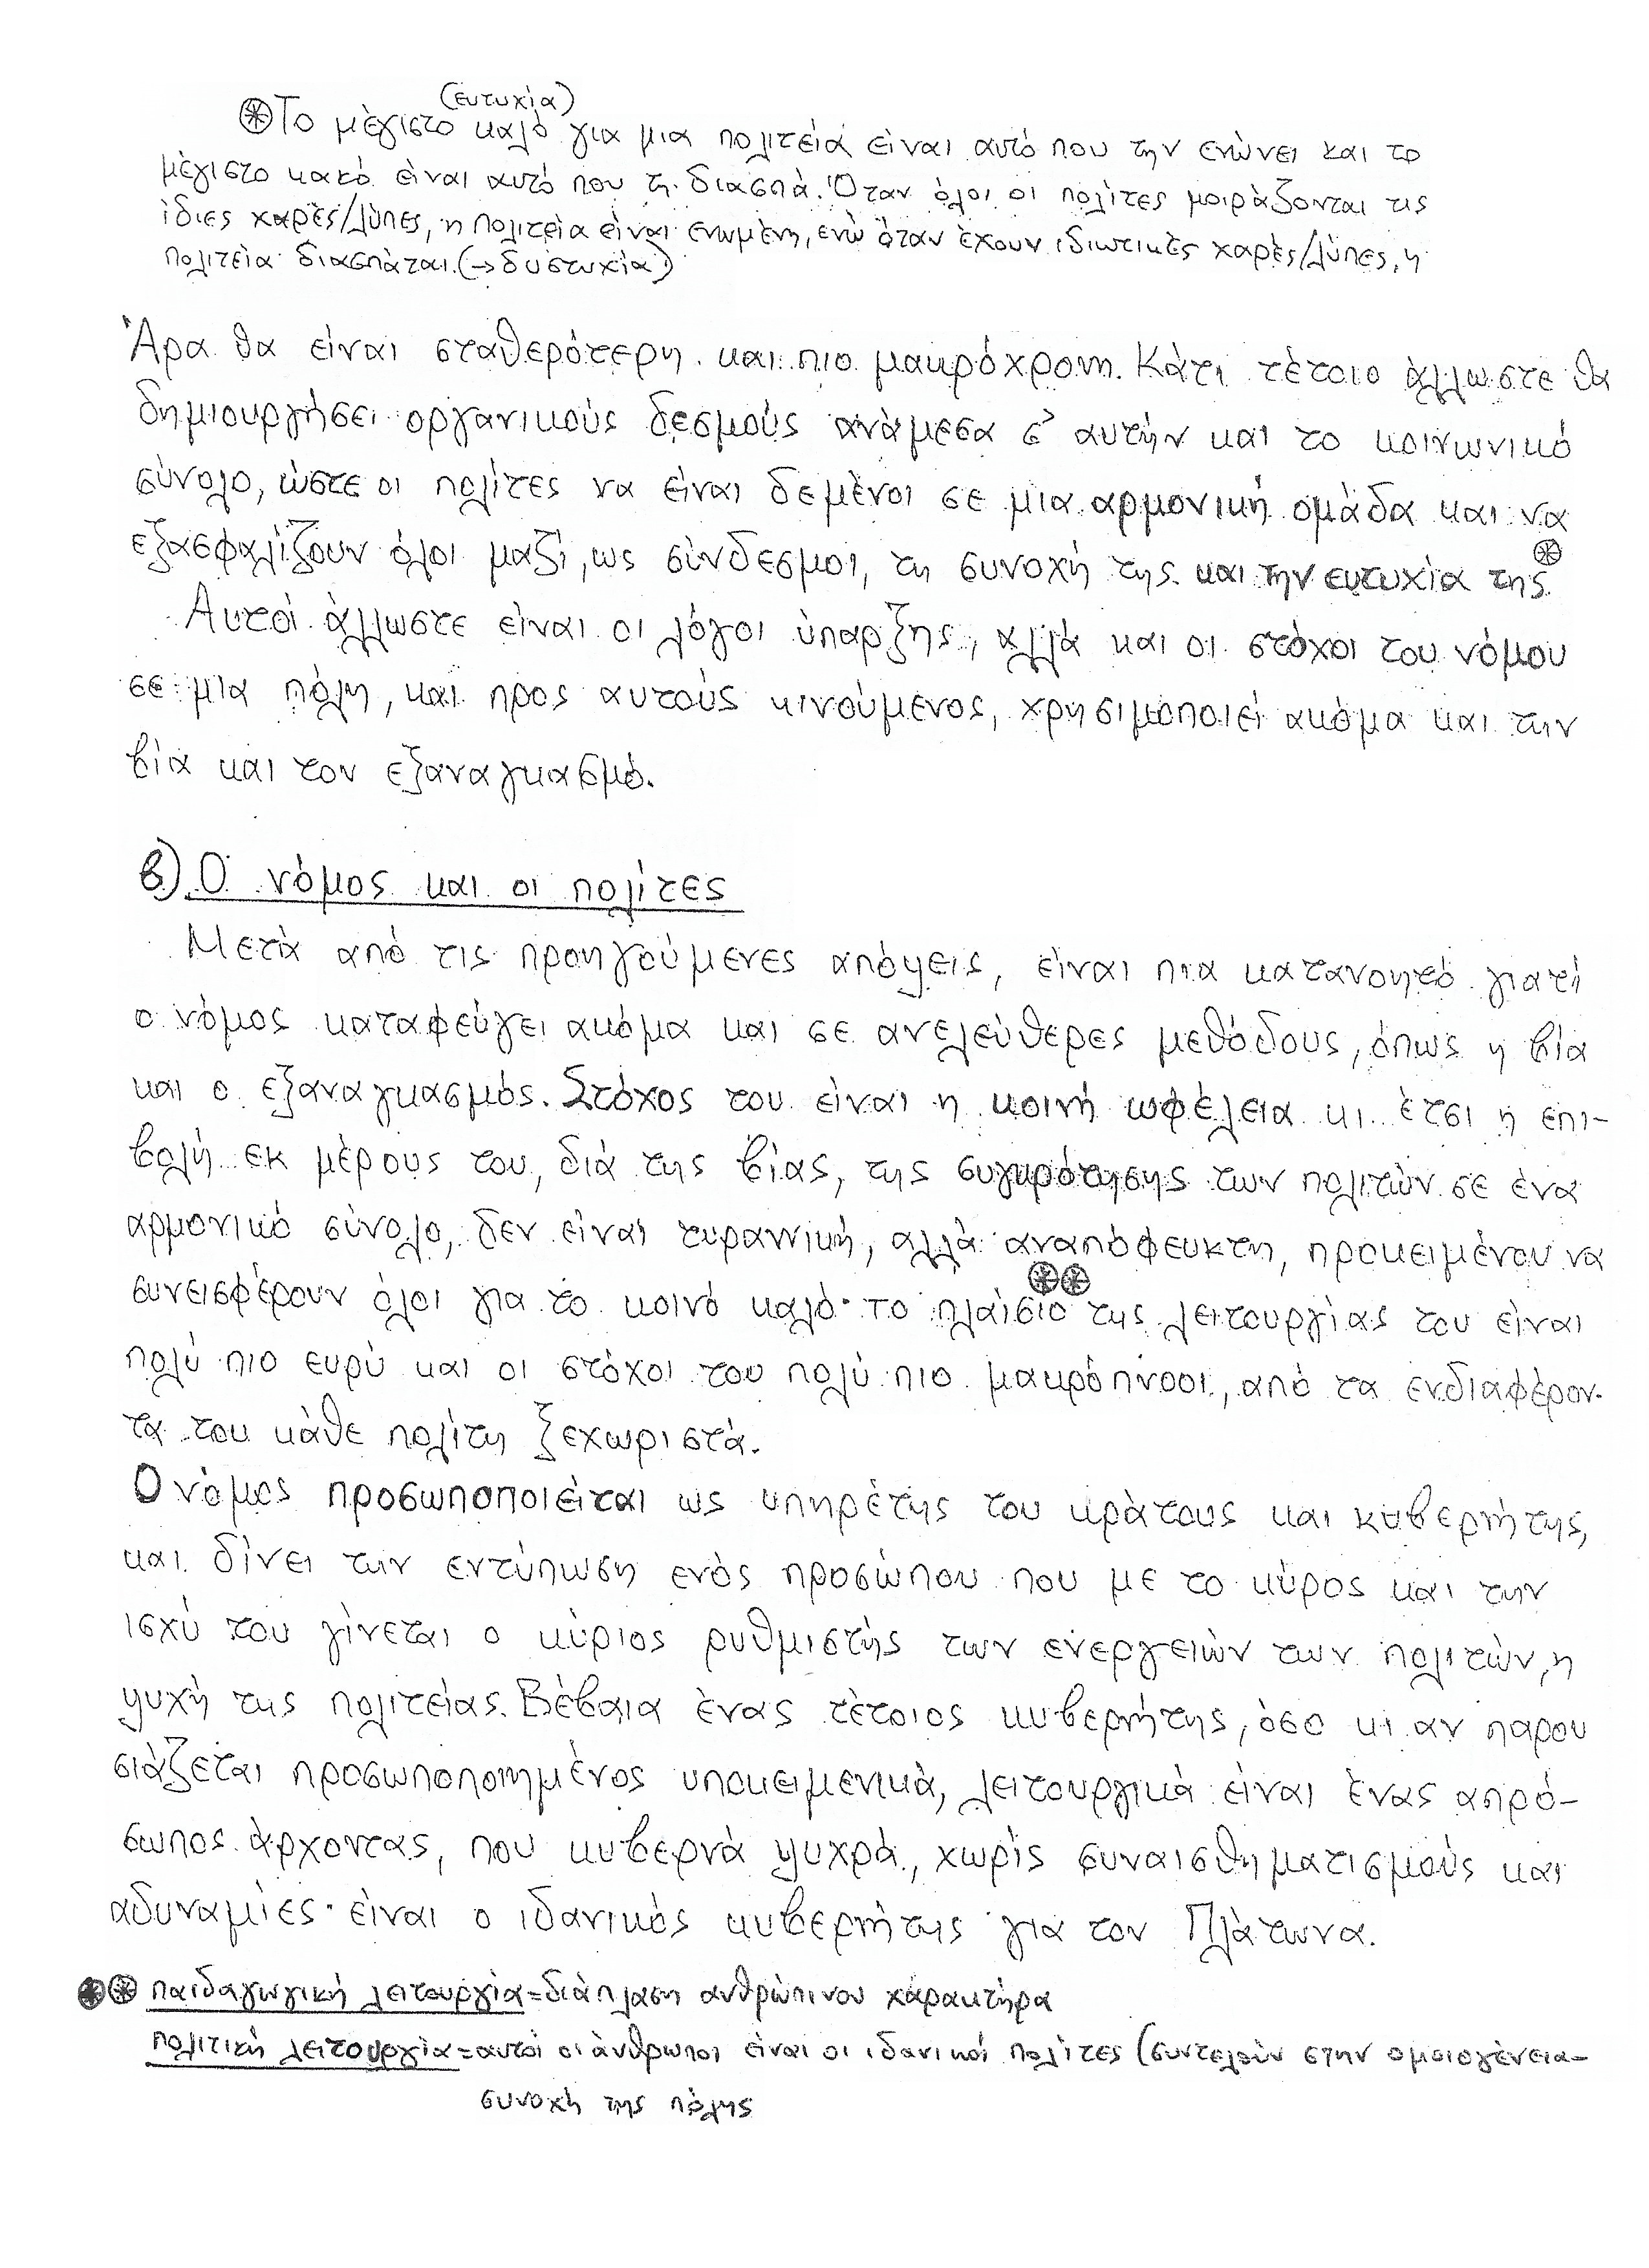 (ευτυχία)
⊛ Το μέγιστο καλό για μια πολιτεία είναι αυτό που την ενώνει και το
μέγιστο κακό είναι αυτό που τη διασπά. Όταν όλοι οι πολίτες μοιράζονται τις
ίδιες χαρές/λύπες, η πολιτεία είναι ενωμένη, ενώ όταν έχουν ιδιωτικές χαρές/λύπες, η
πολιτεία διασπάται. (→ δυστυχία)
Άρα θα είναι σταθερότερη και πιο μακρόχρονη. Κάτι τέτοιο άλλωστε θα
δημιουργήσει οργανικούς δεσμούς ανάμεσα σ' αυτήν και το κοινωνικό
σύνολο, ώστε οι πολίτες να είναι δεμένοι σε μια αρμονική ομάδα και να
εξασφαλίζουν όλοι μαζί, ως σύνδεσμοι, τη συνοχή της και την ευτυχία της ⊛.
Αυτοί άλλωστε είναι οι λόγοι ύπαρξης, αλλά και οι στόχοι του νόμου
σε μια πόλη, και προς αυτούς κινούμενος, χρησιμοποιεί ακόμα και την
βία και τον εξαναγκασμό.
β) Ο νόμος και οι πολίτες
Μετά από τις προηγούμενες απόψεις, είναι πια κατανοητό γιατί
ο νόμος καταφεύγει ακόμα και σε ανελεύθερες μεθόδους, όπως η βία
και ο εξαναγκασμός. Στόχος του είναι η κοινή ωφέλεια κι έτσι η επι-
βολή εκ μέρους του, διά της βίας, της συγκρότησης των πολιτών σε ένα
αρμονικό σύνολο, δεν είναι τυραννική, αλλά αναπόφευκτη, προκειμένου να
συνεισφέρουν όλοι για το κοινό καλό· το πλαίσιο ⊛⊛ της λειτουργίας του είναι
πολύ πιο ευρύ και οι στόχοι του πολύ πιο μακρόπνοοι, από τα ενδιαφέρον-
τα του κάθε πολίτη ξεχωριστά.
Ο νόμος προσωποποιείται ως υπηρέτης του κράτους και κυβερνήτης,
και δίνει την εντύπωση ενός προσώπου που με το κύρος και την
ισχύ του γίνεται ο κύριος ρυθμιστής των ενεργειών των πολιτών, η
ψυχή της πολιτείας. Βέβαια ένας τέτοιος κυβερνήτης, όσο κι αν παρου
σιάζεται προσωποποιημένος υποκειμενικά, λειτουργικά είναι ένας απρό-
σωπος άρχοντας, που κυβερνά ψυχρά, χωρίς συναισθηματισμούς και
αδυναμίες· είναι ο ιδανικός κυβερνήτης για τον Πλάτωνα.
⊛⊛ παιδαγωγική λειτουργία = διάπλαση ανθρώπινου χαρακτήρα
πολιτική λειτουργία = αυτοί οι άνθρωποι είναι οι ιδανικοί πολίτες (συντελούν στην ομοιογένεια-
συνοχή της πόλης